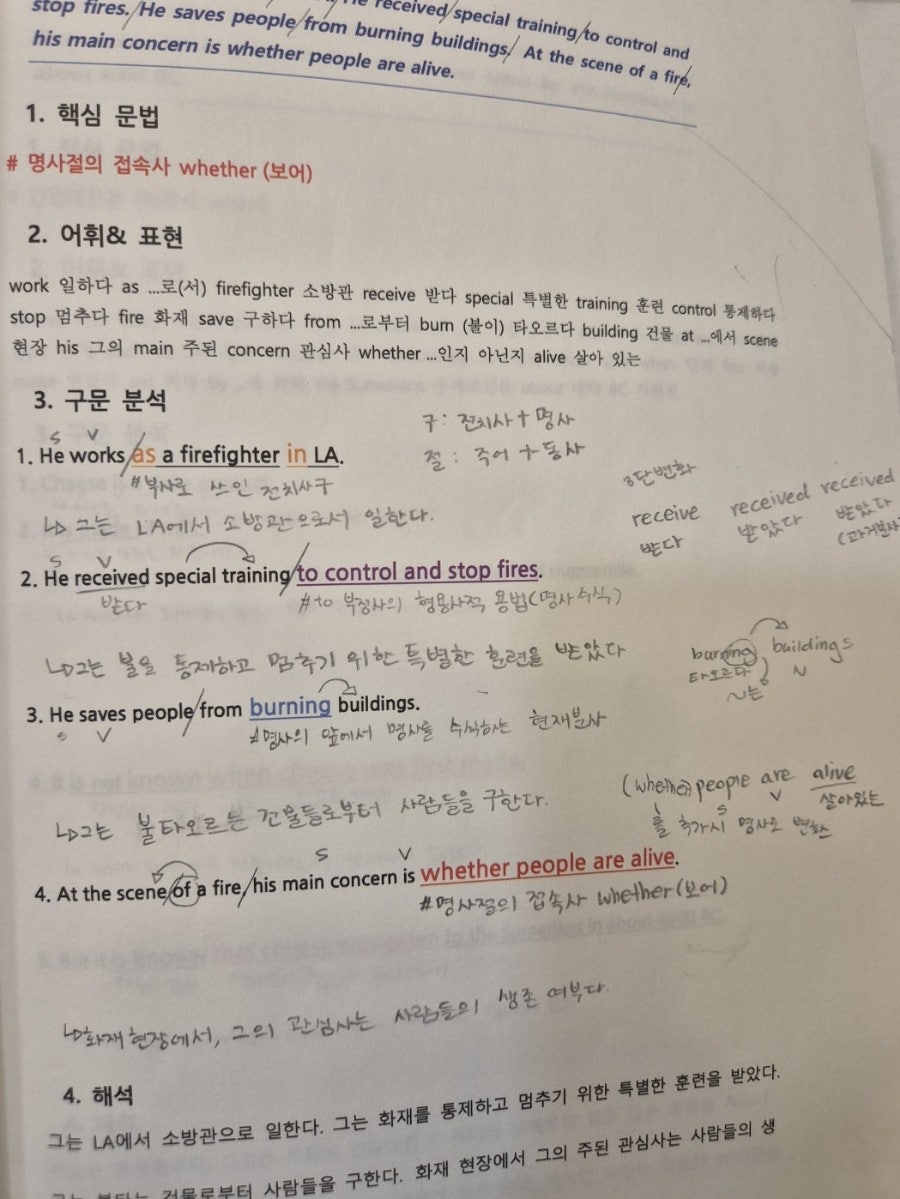 He received special training to control and
stop fires. He saves people from burning buildings. At the scene of a fire,
his main concern is whether people are alive.
1. 핵심 문법
# 명사절의 접속사 whether (보어)
2. 어휘& 표현
work 일하다 as ...로(서) firefighter 소방관 receive 받다 special 특별한 training 훈련 control 통제하다
stop 멈추다 fire 화재 save 구하다 from ...로부터 burn (불이) 타오르다 building 건물 at ...에서 scene
현장 his 그의 main 주된 concern 관심사 whether ...인지 아닌지 alive 살아 있는
3. 구문 분석
구: 전치사+명사
절: 주어+동사
S V
1. He works as a firefighter in LA.
#부사로 쓰인 전치사구
↳ 그는 LA에서 소방관으로서 일한다.
3단변화
receive received received
받다 받았다 받았다
(과거분사)
S V
2. He received special training to control and stop fires.
받다 #to 부정사의 형용사적 용법(명사 수식)
↳그는 불을 통제하고 멈추기 위한 특별한 훈련을 받았다
burning buildings
타오르다 N
~는
3. He saves people from burning buildings.
S V #명사의 앞에서 명사를 수식하는 현재분사
↳그는 불타오르는 건물들로부터 사람들을 구한다.
(whether) people are alive
S V 살아있는
를 추가시 명사로 변화
S V
4. At the scene of a fire, his main concern is whether people are alive.
#명사절의 접속사 whether(보어)
↳화재 현장에서, 그의 관심사는 사람들의 생존 여부다.
4. 해석
그는 LA에서 소방관으로 일한다. 그는 화재를 통제하고 멈추기 위한 특별한 훈련을 받았다.
그는 불타는 건물로부터 사람들을 구한다. 화재 현장에서 그의 주된 관심사는 사람들의 생